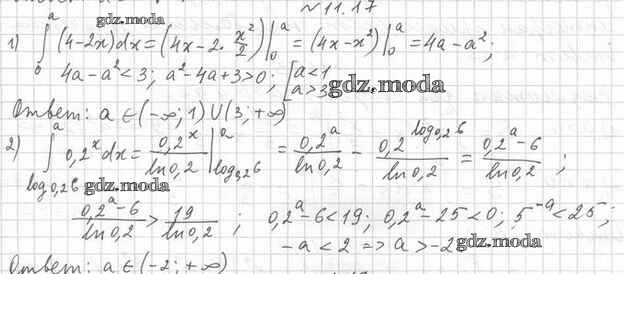 №11.17
gdz.moda
1) ∫₀ᵃ (4-2x)dx = (4x - 2· x²/2)|₀ᵃ = (4x-x²)|₀ᵃ = 4a-a²;
4a-a²<3; a²-4a+3>0; [a<1 a>3 gdz.moda
Ответ: a∈(-∞; 1)∪(3; +∞)
2) ∫_{log₀,₂6}^a 0,2ˣdx = 0,2ˣ/ln0,2 |_{log₀,₂6}^a = 0,2ᵃ/ln0,2 - 0,2^{log₀,₂6}/ln0,2 = (0,2ᵃ-6)/ln0,2 ;
gdz.moda
(0,2ᵃ-6)/ln0,2 > 19/ln0,2 ; 0,2ᵃ-6<19; 0,2ᵃ-25<0; 5⁻ᵃ<25;
-a<2 => a>-2 gdz.moda
Ответ: a∈(-2; +∞)